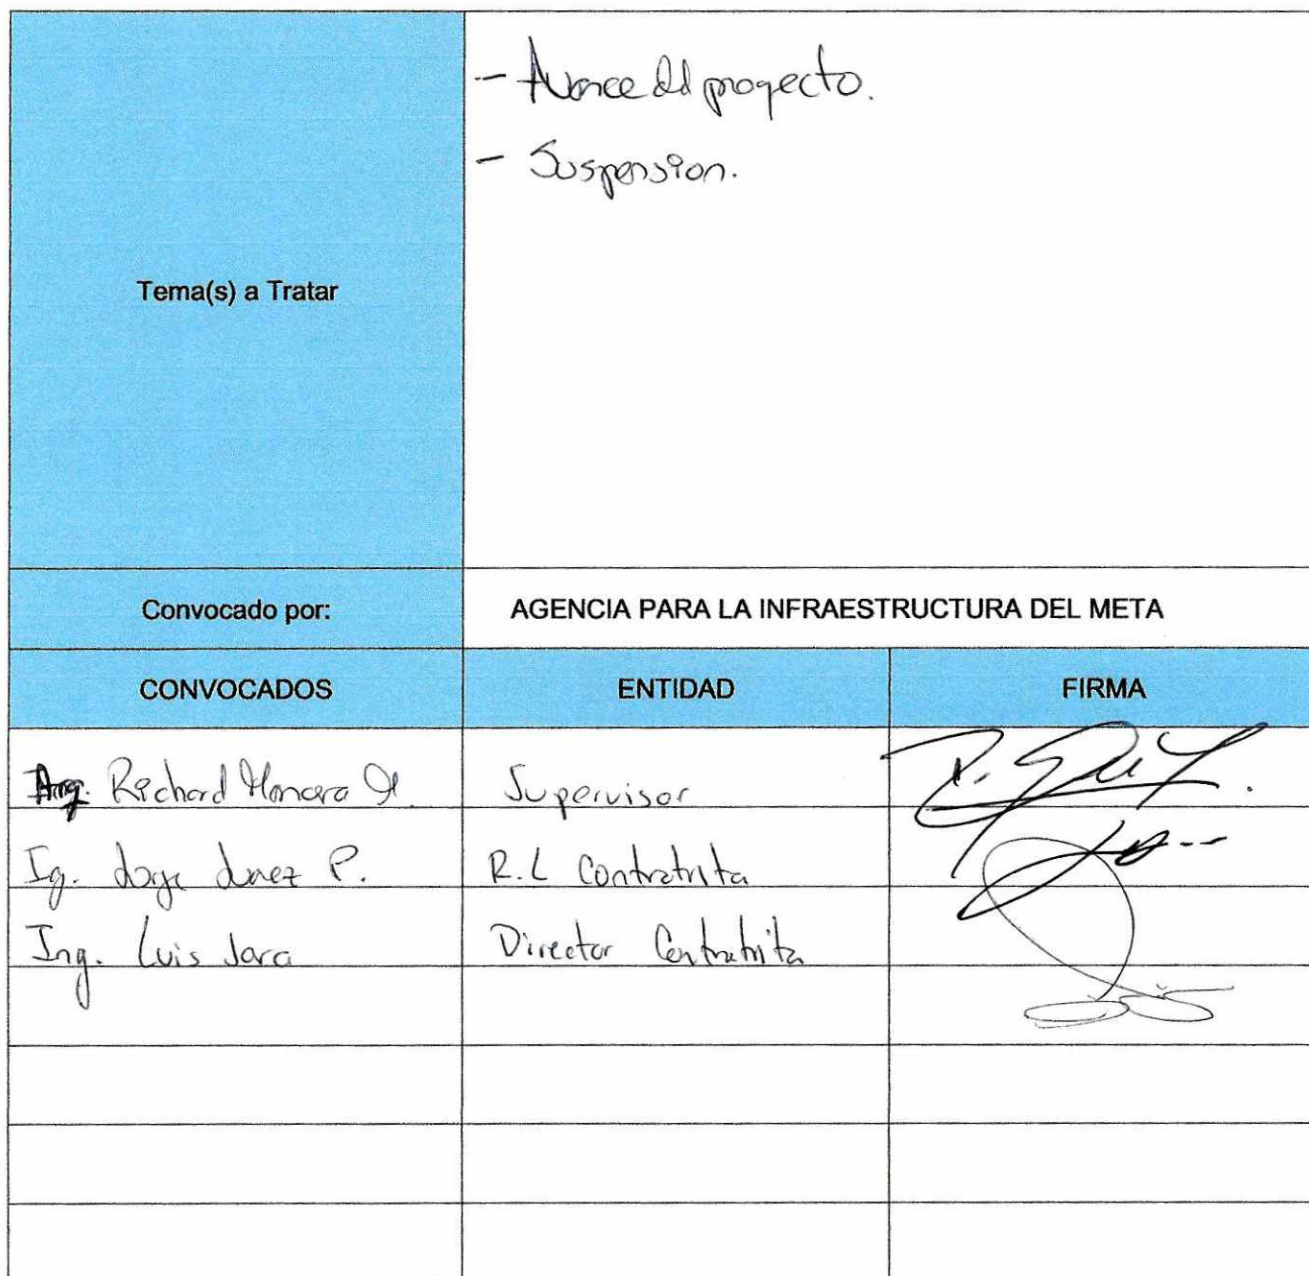 - Avance del proyecto.
- Suspension.
Tema(s) a Tratar
Convocado por: AGENCIA PARA LA INFRAESTRUCTURA DEL META
CONVOCADOS ENTIDAD FIRMA
Arq. Richard Supervisor
Ig. Jorge P. R.L Contratista
Ing. Luis Jara Director Contratista